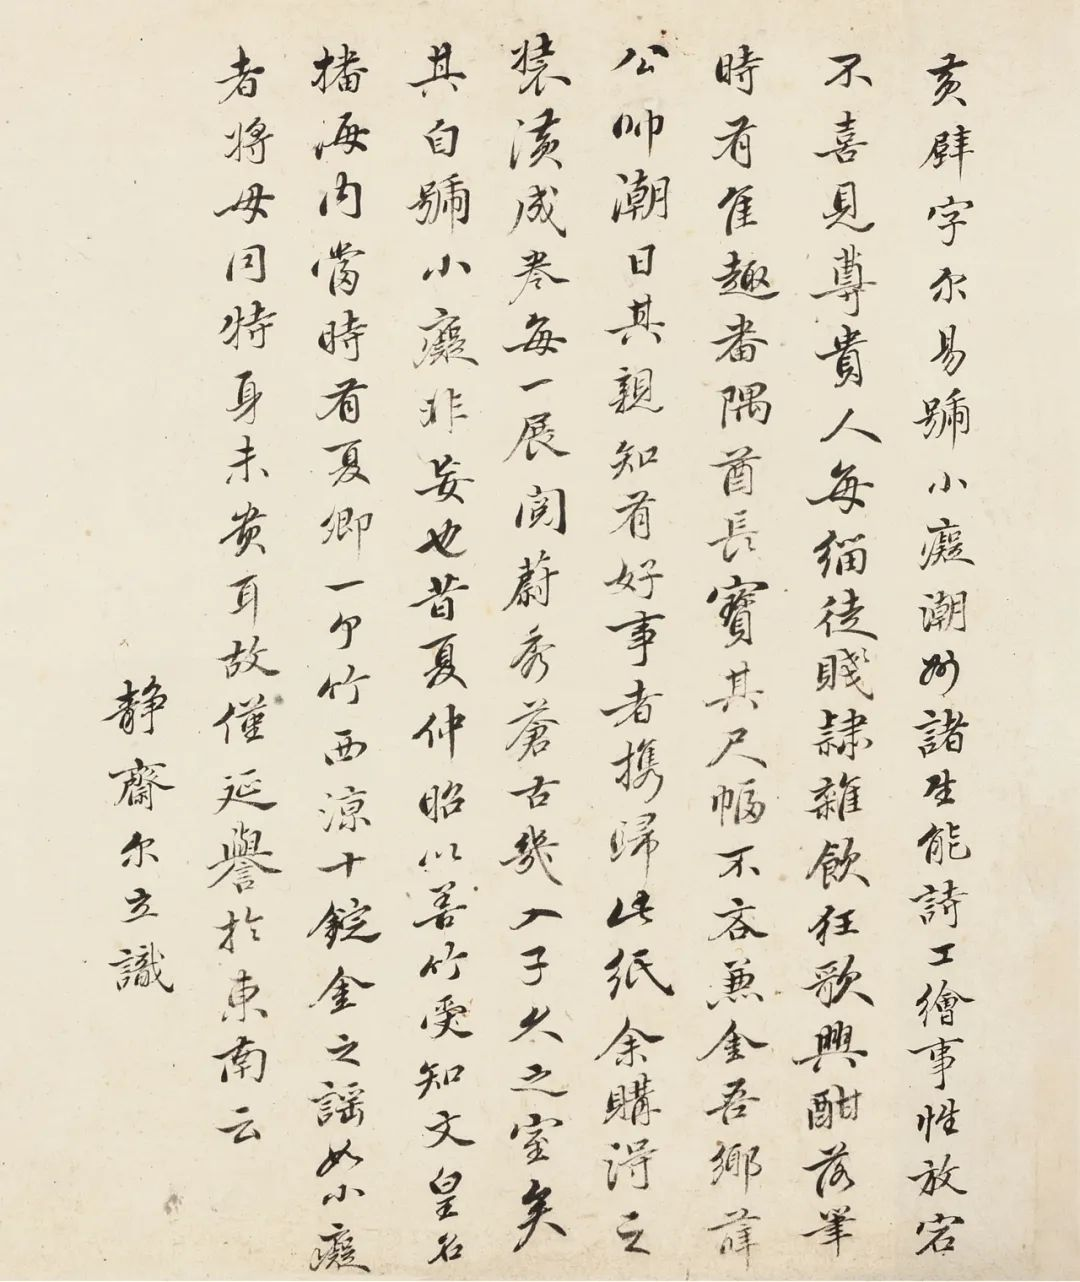 黃璧字尔易號小癡潮州諸生能詩工繪事性放宕
不喜見尊貴人每緇徒賤隷雜飲狂歌興酣落筆
時有隹趣畨隅酋長寶其尺幅不吝兼金吾鄉薛
公帅潮日其親知有好事者攜歸此紙余購得之
裝潢成卷每一展閱蔚秀蒼古幾入子久之室矣
其自號小癡非妄也昔夏仲昭以善竹受知文皇名
播海內當時有夏卿一个竹西涼十錠金之謡如小癡
者將毋同特身未贵耳故僅延譽於東南云
靜齋尔立識